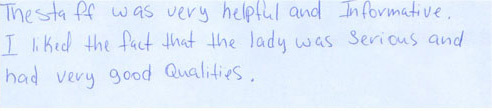 The staff was very helpful and Informative.
I liked the fact that the lady was Serious and
had very good Qualities.